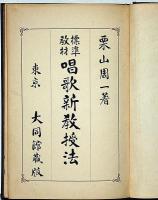 栗山周一著
標準
教材
唱歌新教授法
東京
大同館蔵版